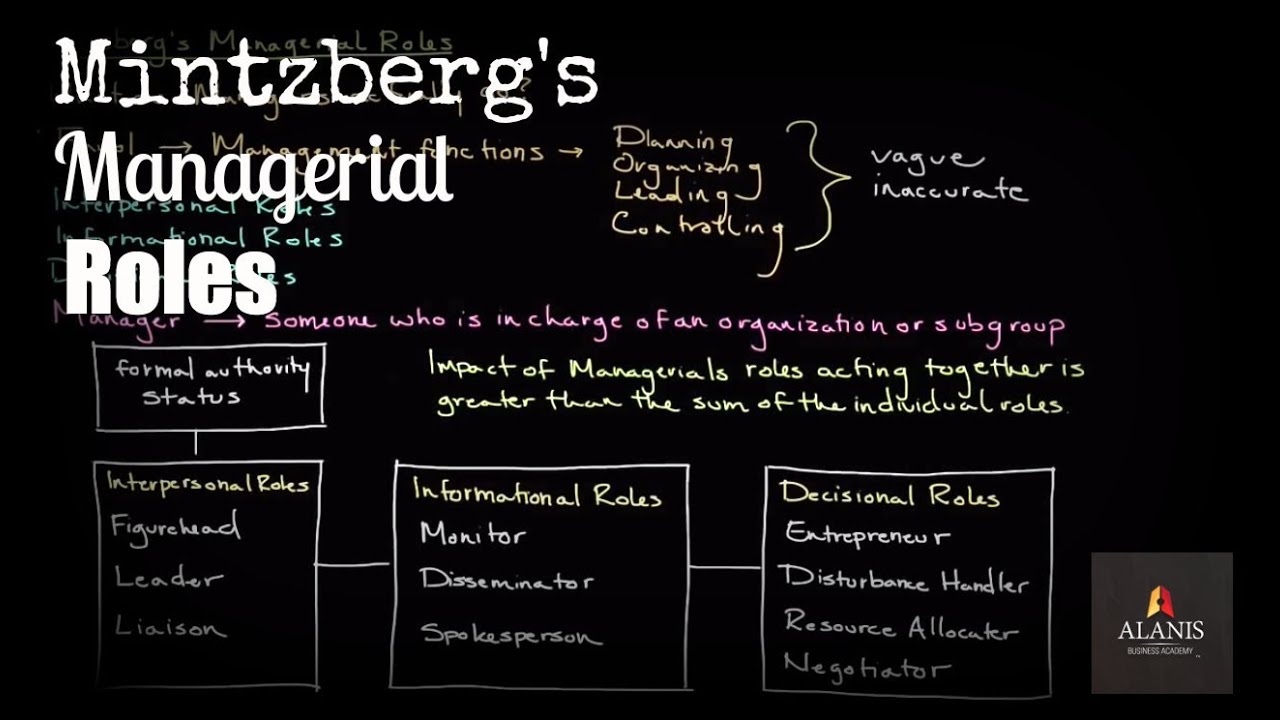 Mintzberg's
Managerial
Roles
berg's Managerial Roles
→ Management functions →
Planning
Organizing
Leading
Controlling
vague
inaccurate
Interpersonal Roles
Informational Roles
Roles
Manager → Someone who is in charge of an organization or subgroup
formal authority
status
Impact of Managerials roles acting together is
greater than the sum of the individual roles.
Interpersonal Roles
Figurehead
Leader
Liaison
Informational Roles
Monitor
Disseminator
Spokesperson
Decisional Roles
Entrepreneur
Disturbance Handler
Resource Allocater
Negotiator
ALANIS
BUSINESS ACADEMY